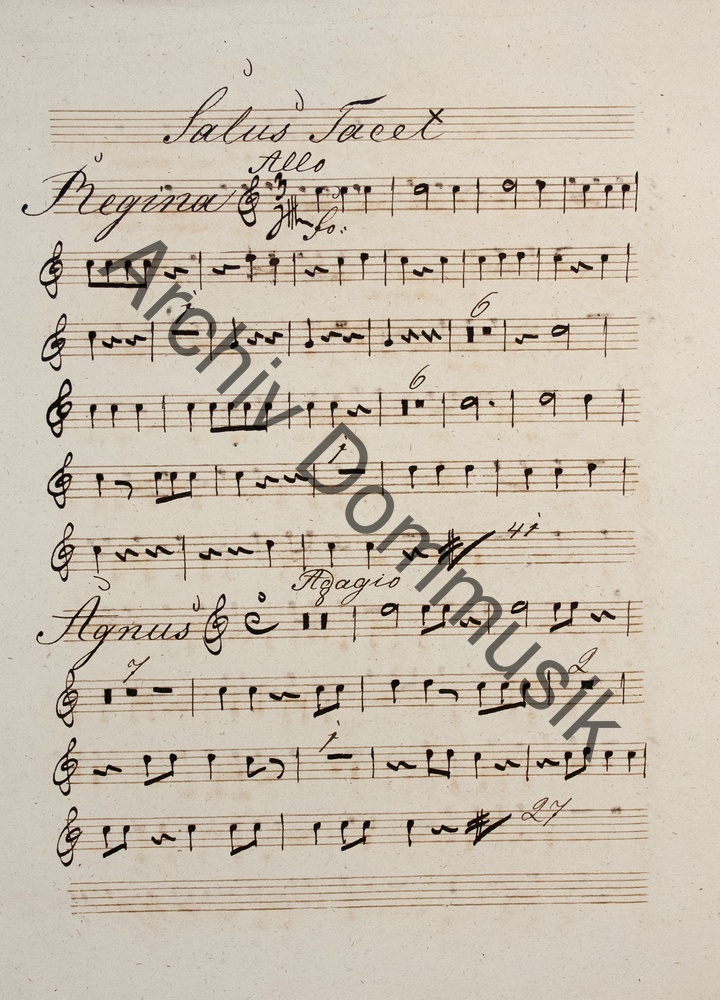 Salus Tacet
Allo
Regina 3 fo:
1
6
6
1
41
Adagio
Agnus 8
7 2
1
27
Archiv Dommusik